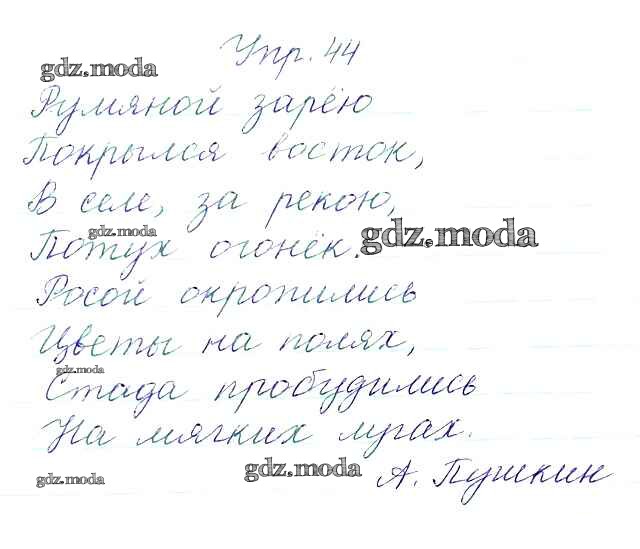 Упр. 44
gdz.moda
Румяной зарёю
Покрылся восток,
В селе, за рекою,
gdz.moda
Потух огонёк.
gdz.moda
Росой окропились
Цветы на полях,
gdz.moda
Стада пробудились
На мягких лугах.
gdz.moda
gdz.moda
А. Пушкин